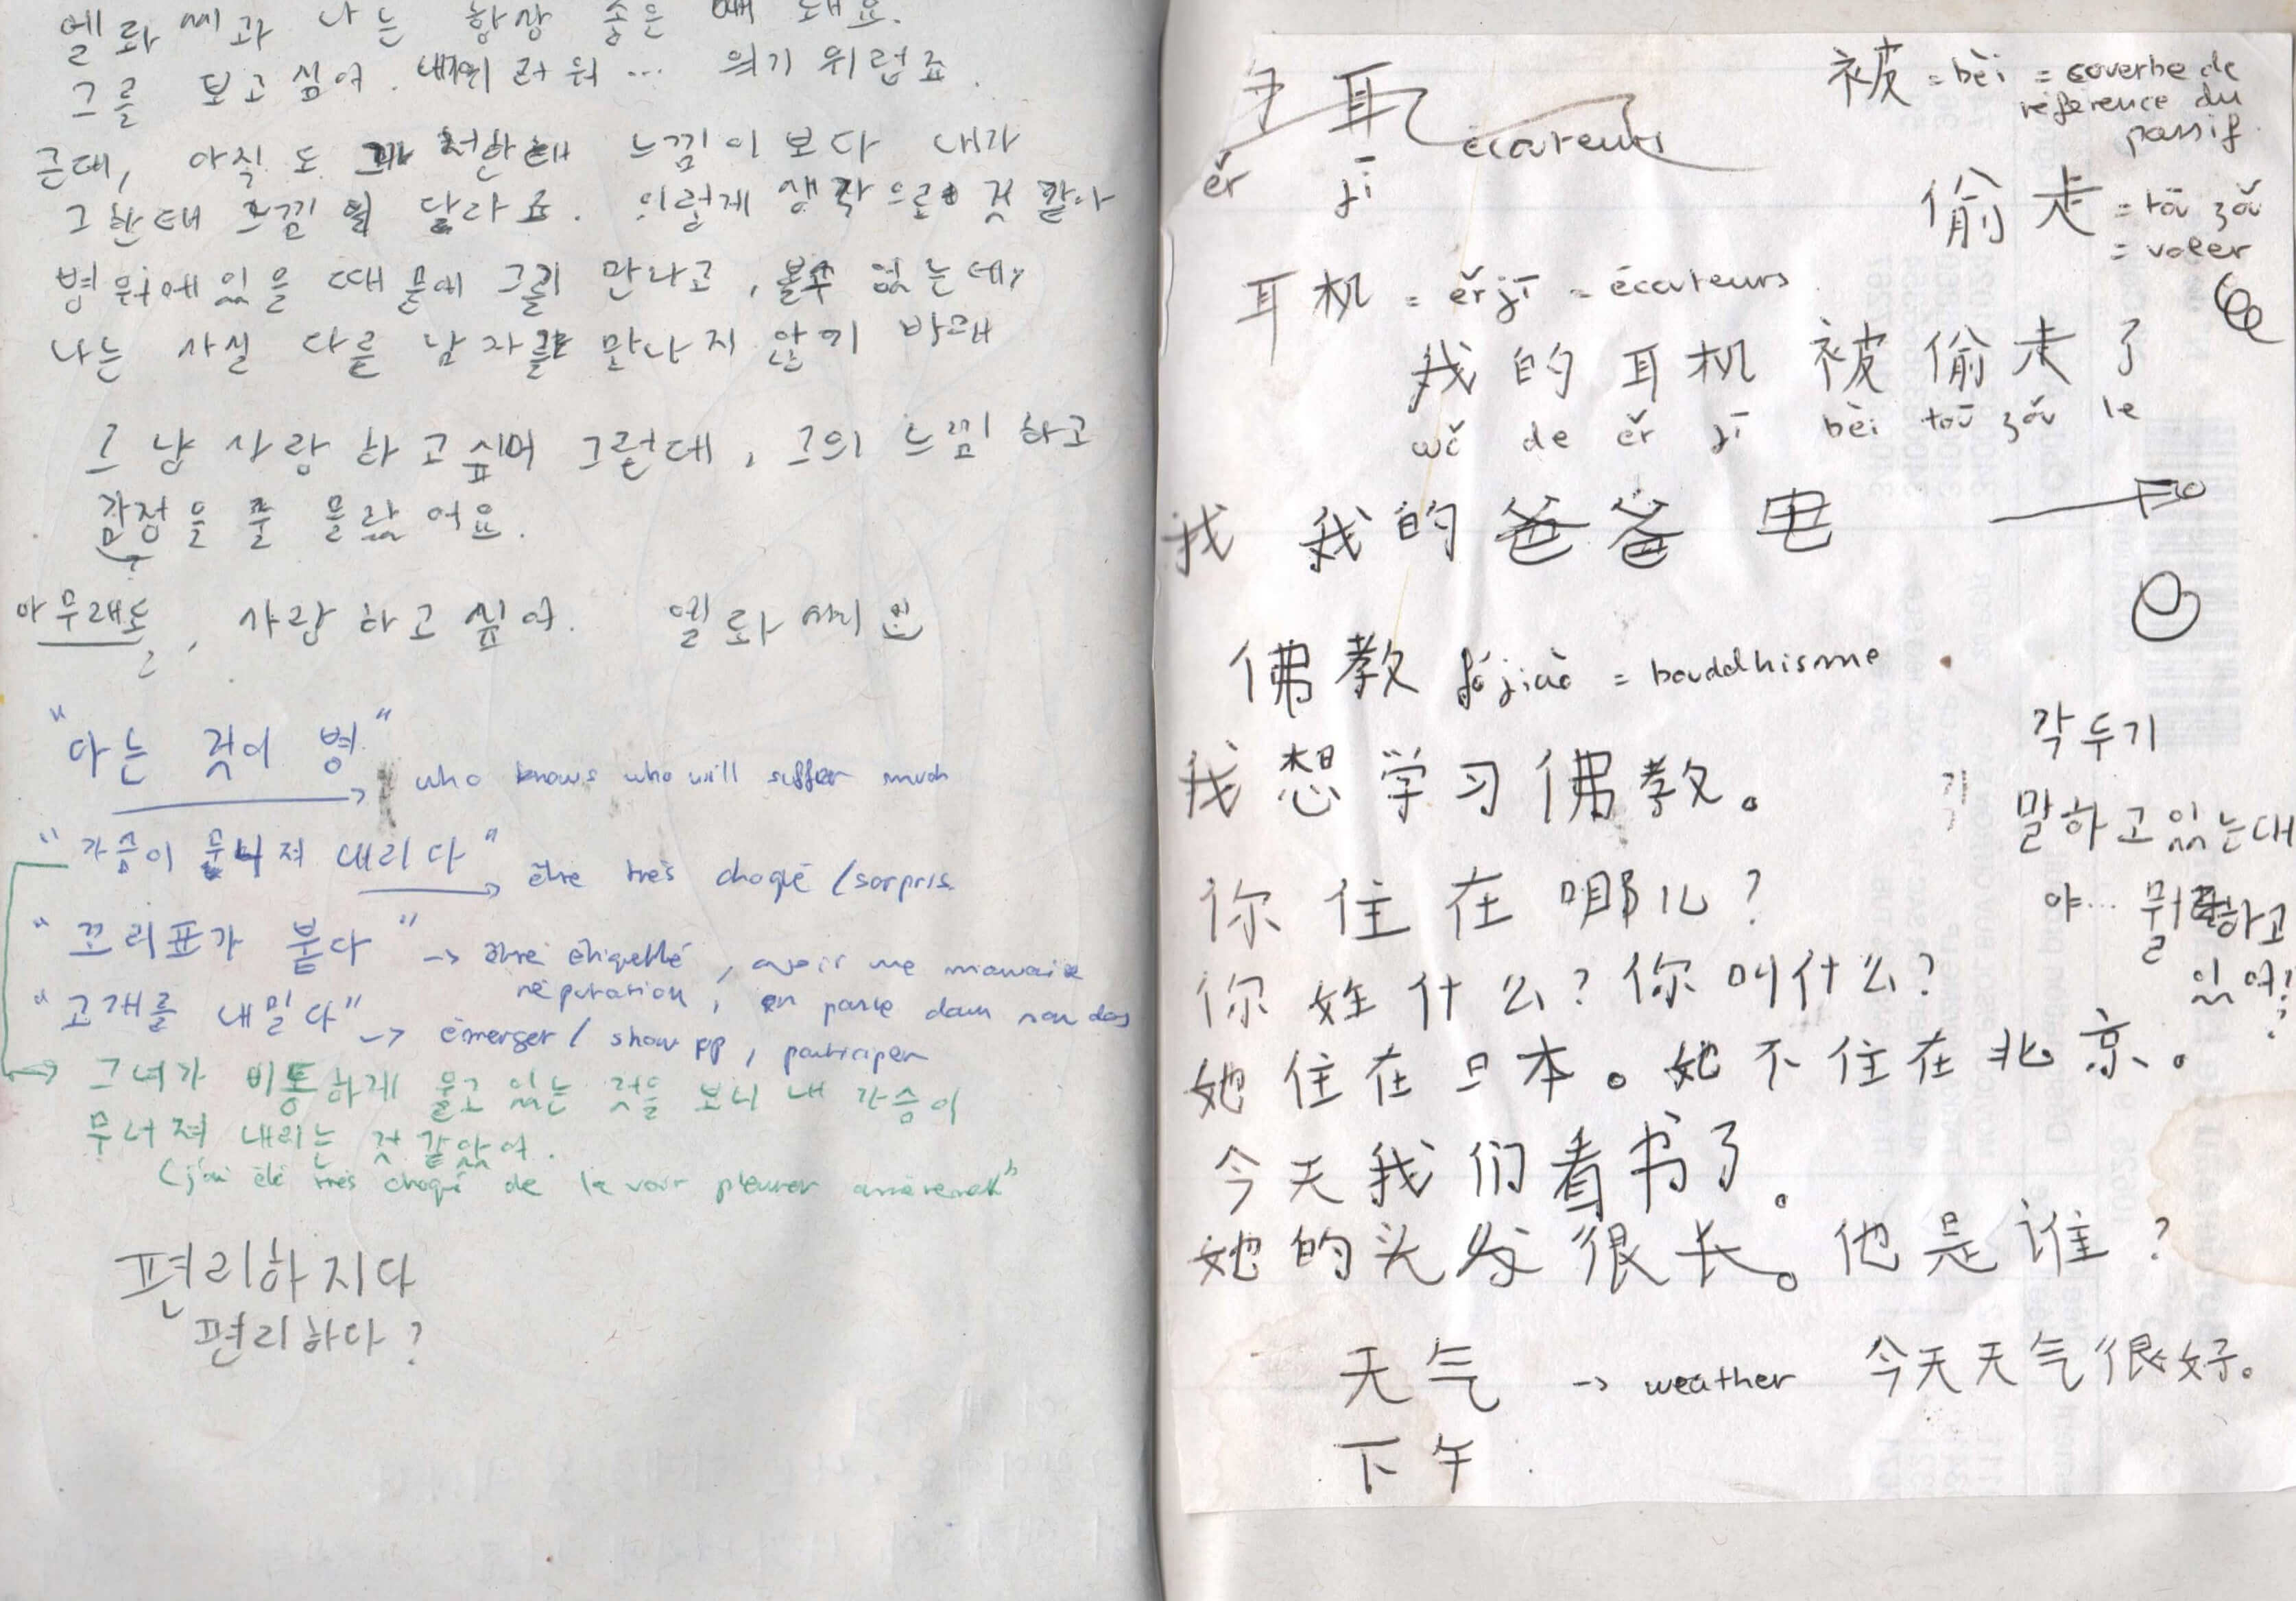 엘롸 씨과 나는 항상 좋은 때 돼요.
그를 보고 싶어. 러워... 의기 위럽죠.
근대, 아직도 느낌이 보다 내가
그한태 느낌 달라요. 이렇게 생각으로 것 같아
병원에 있을 때 문에 만나고, 볼수 없는데,
나는 사실 다를 남자를 만나지 않기 바래
그냥 사랑 하고 싶어 그런대, 그의 느낌 하고
감정을 줄 몰랐어요.
아무래도, 사랑 하고 싶어. 엘롸 씨
"아는 것이 병" who knows who will suffer much
"가슴이 무너져 내리다" être très choqé / sorpris
"꼬리표가 붙다" -> être étiquetté, avoir une mauvaise
réputation, on parle dans son dos
"고개를 내밀다" -> émerger / show up, participer
-> 그녀가 비통하게 울고 있는 것을 보니 내 가슴이
무너져 내리는 것 같았어.
(j'ai été très choqé de la voir pleurer amèrement"
편리하지다
편리하다?
耳 écouteurs
ěr jī
被 = bèi = coverbe de
référence du
passif.
偷走 = toū zǒu
= voler
耳机 = ěrjī = écouteurs.
我的耳机被偷走了
wǒ de ěr jī bèi toū zǒu le
我 我的爸爸 电
佛教 fójiào = bouddhisme
我想学习佛教。
각두기
기 말하고 있는대
야... 뭘 하고
있어?
你住在哪儿?
你姓什么? 你叫什么?
她住在日本。她不住在北京。
今天我们看书了。
她的头发很长。他是谁?
天气 -> weather 今天天气很好。
下午